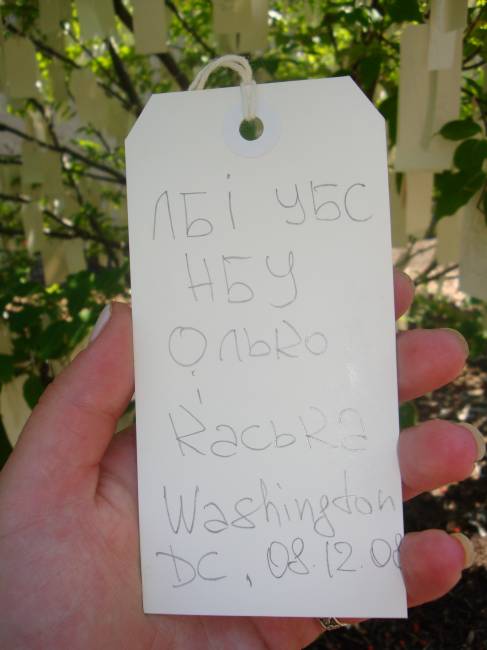 ЛБІ УБС
НБУ
Олько
і
Каська
Washington
DC, 08.12.08